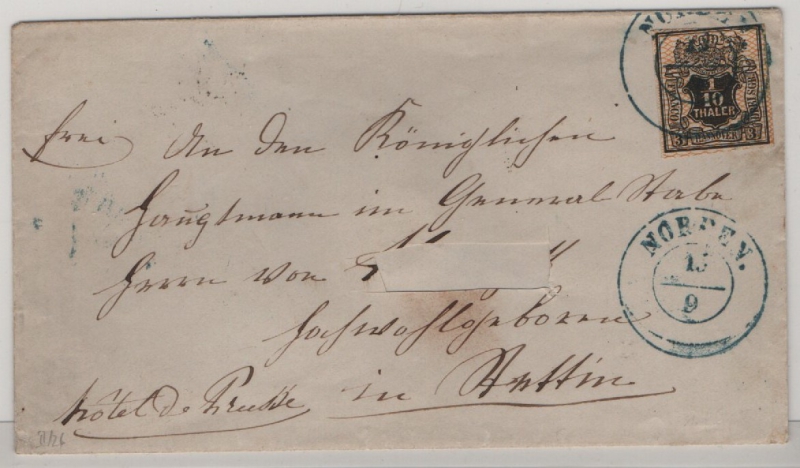 NORDEN
1
10
THALER
HANNOVER
3 3
frei An den Königlichen
Hauptmann im General Stabe
Herrn von
Hochwohlgeboren
in Stettin
hôtel de Prusse
NORDEN.
15
9